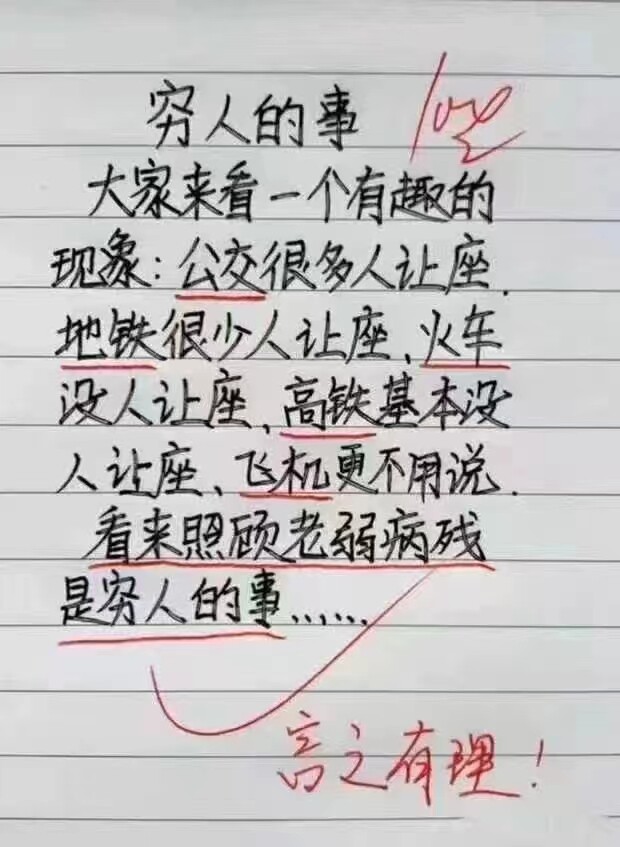 穷人的事
100
大家来看一个有趣的
现象：公交很多人让座、
地铁很少人让座、火车
没人让座、高铁基本没
人让座、飞机更不用说.
看来照顾老弱病残
是穷人的事……
言之有理！